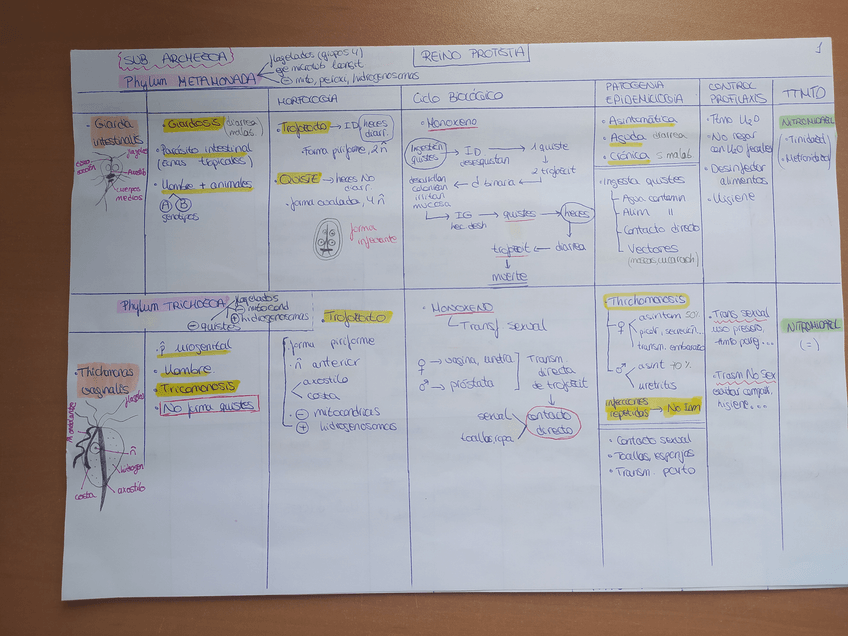 SUB ARCHEZOA
flagelados (grupos 4)
eje microtub transit
⊖ mito, perox, hidrogenosomas
REINO PROTISTA
1
Phylum METAMONADA
MORFOLOGIA
Ciclo BIOLÓGICO
PATOGENIA
EPIDEMIOLOGIA
CONTROL
PROFILAXIS
TTMTO
· Giardia
intestinalis
flagelos
Axost
cuerpos
medios
· Giardosis (diarrea
· Parásito intestinal
(zonas tropicales)
· Hombre + animales
A B
genotipos
· Trofozoito → ID heces
diarr.
· Forma piriforme, 2 n̂
· Quiste → heces No
diarr.
· forma ovalada, 4 n̂
forma
infectante
· Monoxeno
Ingestión
quistes → ID → 1 quiste
desenquistan
↓
2 trofozoit
desarrollan
colonizan
irritan
mucosa
← d binaria ←
→ IG → quistes → heces
trofozoit ← diarrea
↓
muerte
· Asintomática
· Aguda diarrea
· Crónica s malab
· Ingesta quistes
Agua contamin
Alim "
Contacto directo
Vectores
(moscas, cucarach)
· Tmo H2O
· No regar
con H2O fecales
· Desinfectar
alimentos
· Higiene
NITROIMIDAZOL
· Tinidazol
· Metronidazol
Phylum TRICHOZOA
flagelados
⊖ mitocond
⊕ hidrogenosomas
⊖ quistes
· Trichomonas
vaginalis
flagelos
n̂
hidrogen
axostilo
costa
· P urogenital
· Hombre
· Tricomonosis
· No forma quistes
· Trofozoito
· forma piriforme
· n̂ anterior
· axostilo
costa
⊖ mitocondrias
⊕ hidrogenosomas
· MONOXENO
Transf sexual
♀ → vagina, uretra
♂ → próstata
Transm
directa
de trofozoit
↓
sexual
toallas, ropa
contacto
directo
· Trichomonosis
♀ asintom 50%
picor, secreción,
transm. embarazo
♂ asint 70%
uretritis
infecciones
repetidas → No Inm
· Contacto sexual
· Toallas, esponjas
· Transm parto
· Trans sexual
uso preserv,
tmto parej...
· Trasm No Sex
evitar compart,
higiene, ...
NITROIMIDAZOL
(=)